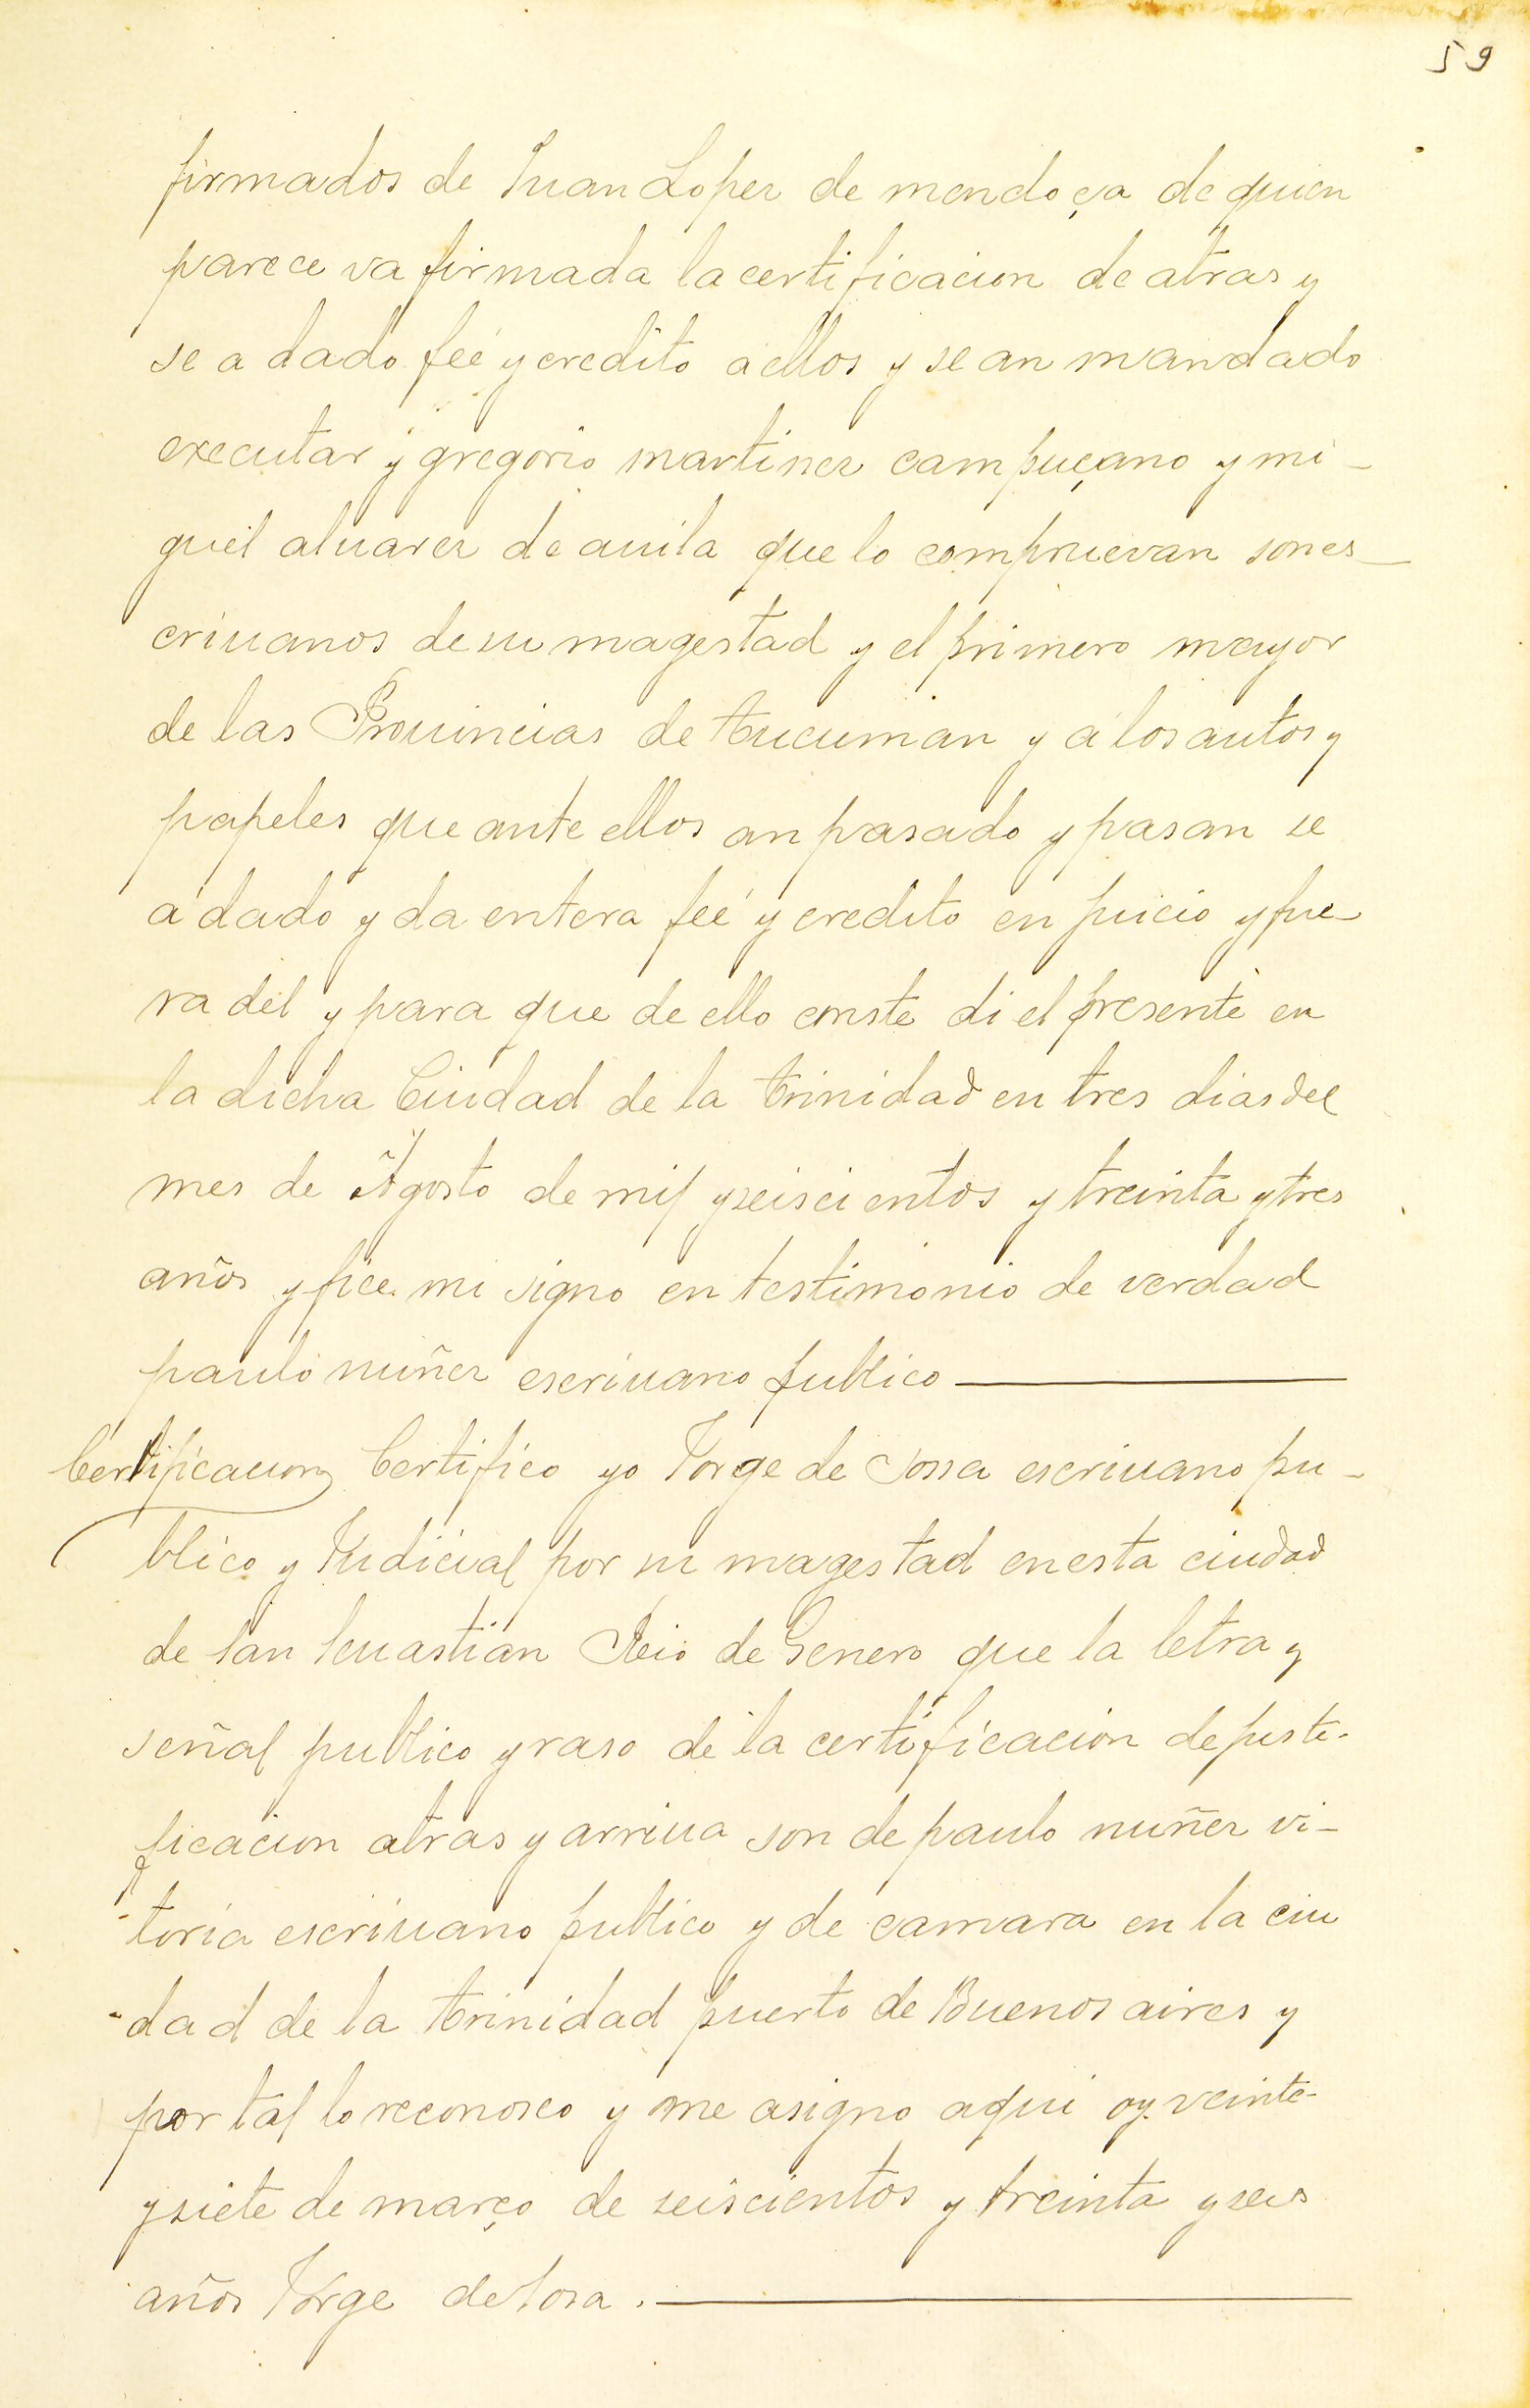 59
firmados de Juan Lopez de mendoça de quien
parece va firmada la certificacion de atras y
se a dado feé y credito a ellos y se an mandado
executar y gregorio martinez campuçano y mi-
guel aluarez de auila que lo compruevan son es-
criuanos de su magestad y el primero mayor
de las Prouincias de tucuman y a los autos y
papeles que ante ellos an pasado y pasan se
a dado y da entera feé y credito en juicio y fue-
ra del y para que de ello conste di el presente en
la dicha Ciudad de la trinidad en tres dias del
mes de Agosto de mil y seiscientos y treinta y tres
años y fice mi signo en testimonio de verdad
paulo nuñez escriuano publico
Certificacion Certifico yo Jorge de Sossa escriuano pu-
blico y Judicial por su magestad en esta ciudad
de san seuastian Reio de Genero que la letra y
señal publico y raso de la certificacion de juste-
ficacion atras y arriua son de paulo nuñez vi-
toria escriuano publico y de camara en la ciu
dad de la trinidad puerto de Buenos aires y
por tal lo reconosco y me asigno aqui oy veinte
y siete de março de seiscientos y treinta y seis
años Jorge de Sosa.